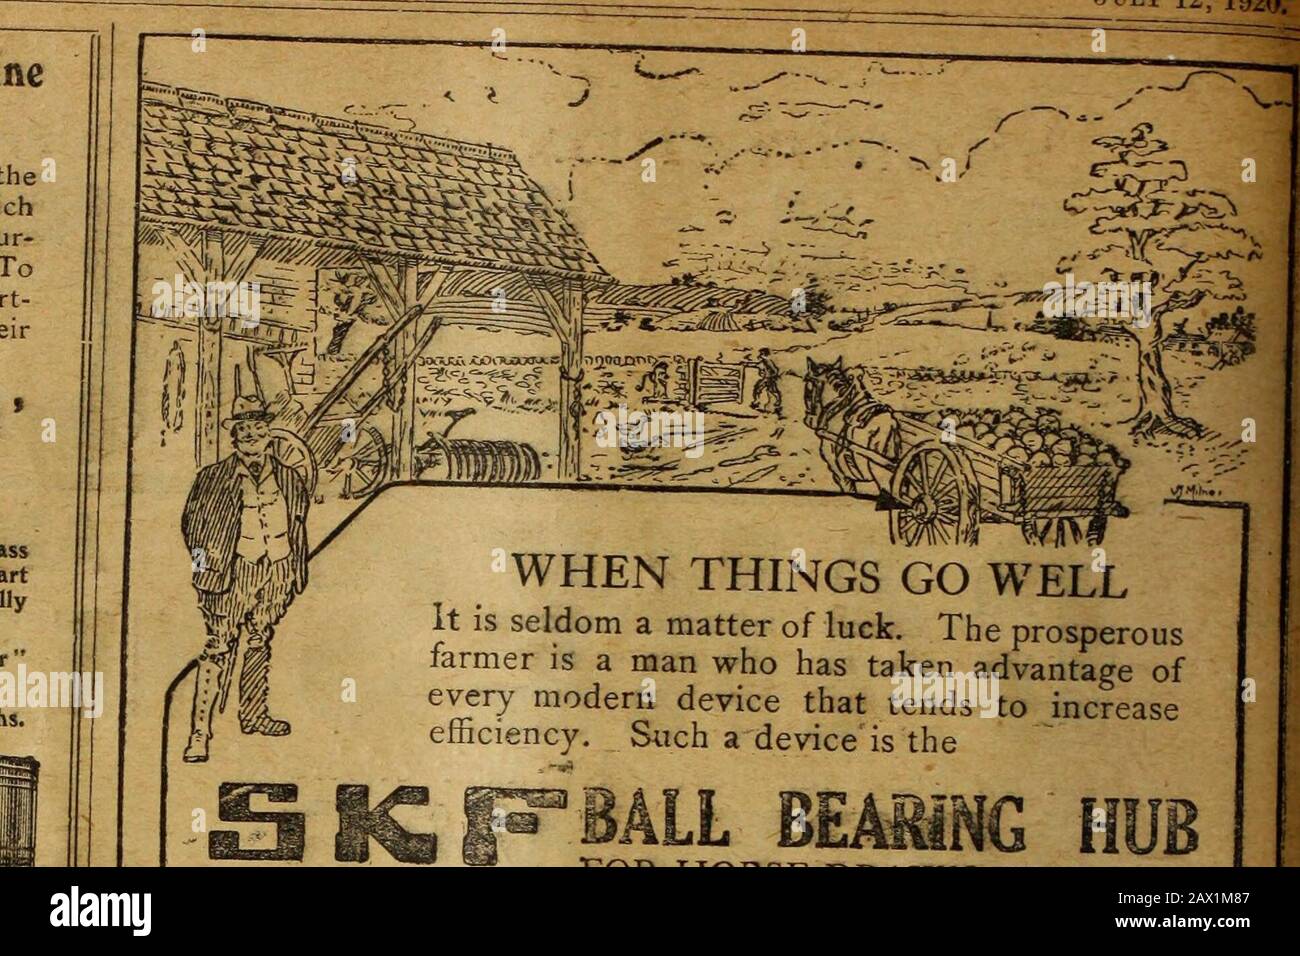 JULY 12, 1920.
ne
the
ch
ur-
To
rt-
eir
,
ass
art
lly
r"
ns.
WHEN THINGS GO WELL
It is seldom a matter of luck. The prosperous
farmer is a man who has taken advantage of
every modern device that tends to increase
efficiency. Such a device is the
SKF BALL BEARING HUB
FOR HORSE
a
alamy
Image ID: 2AX1M87
www.alamy.com